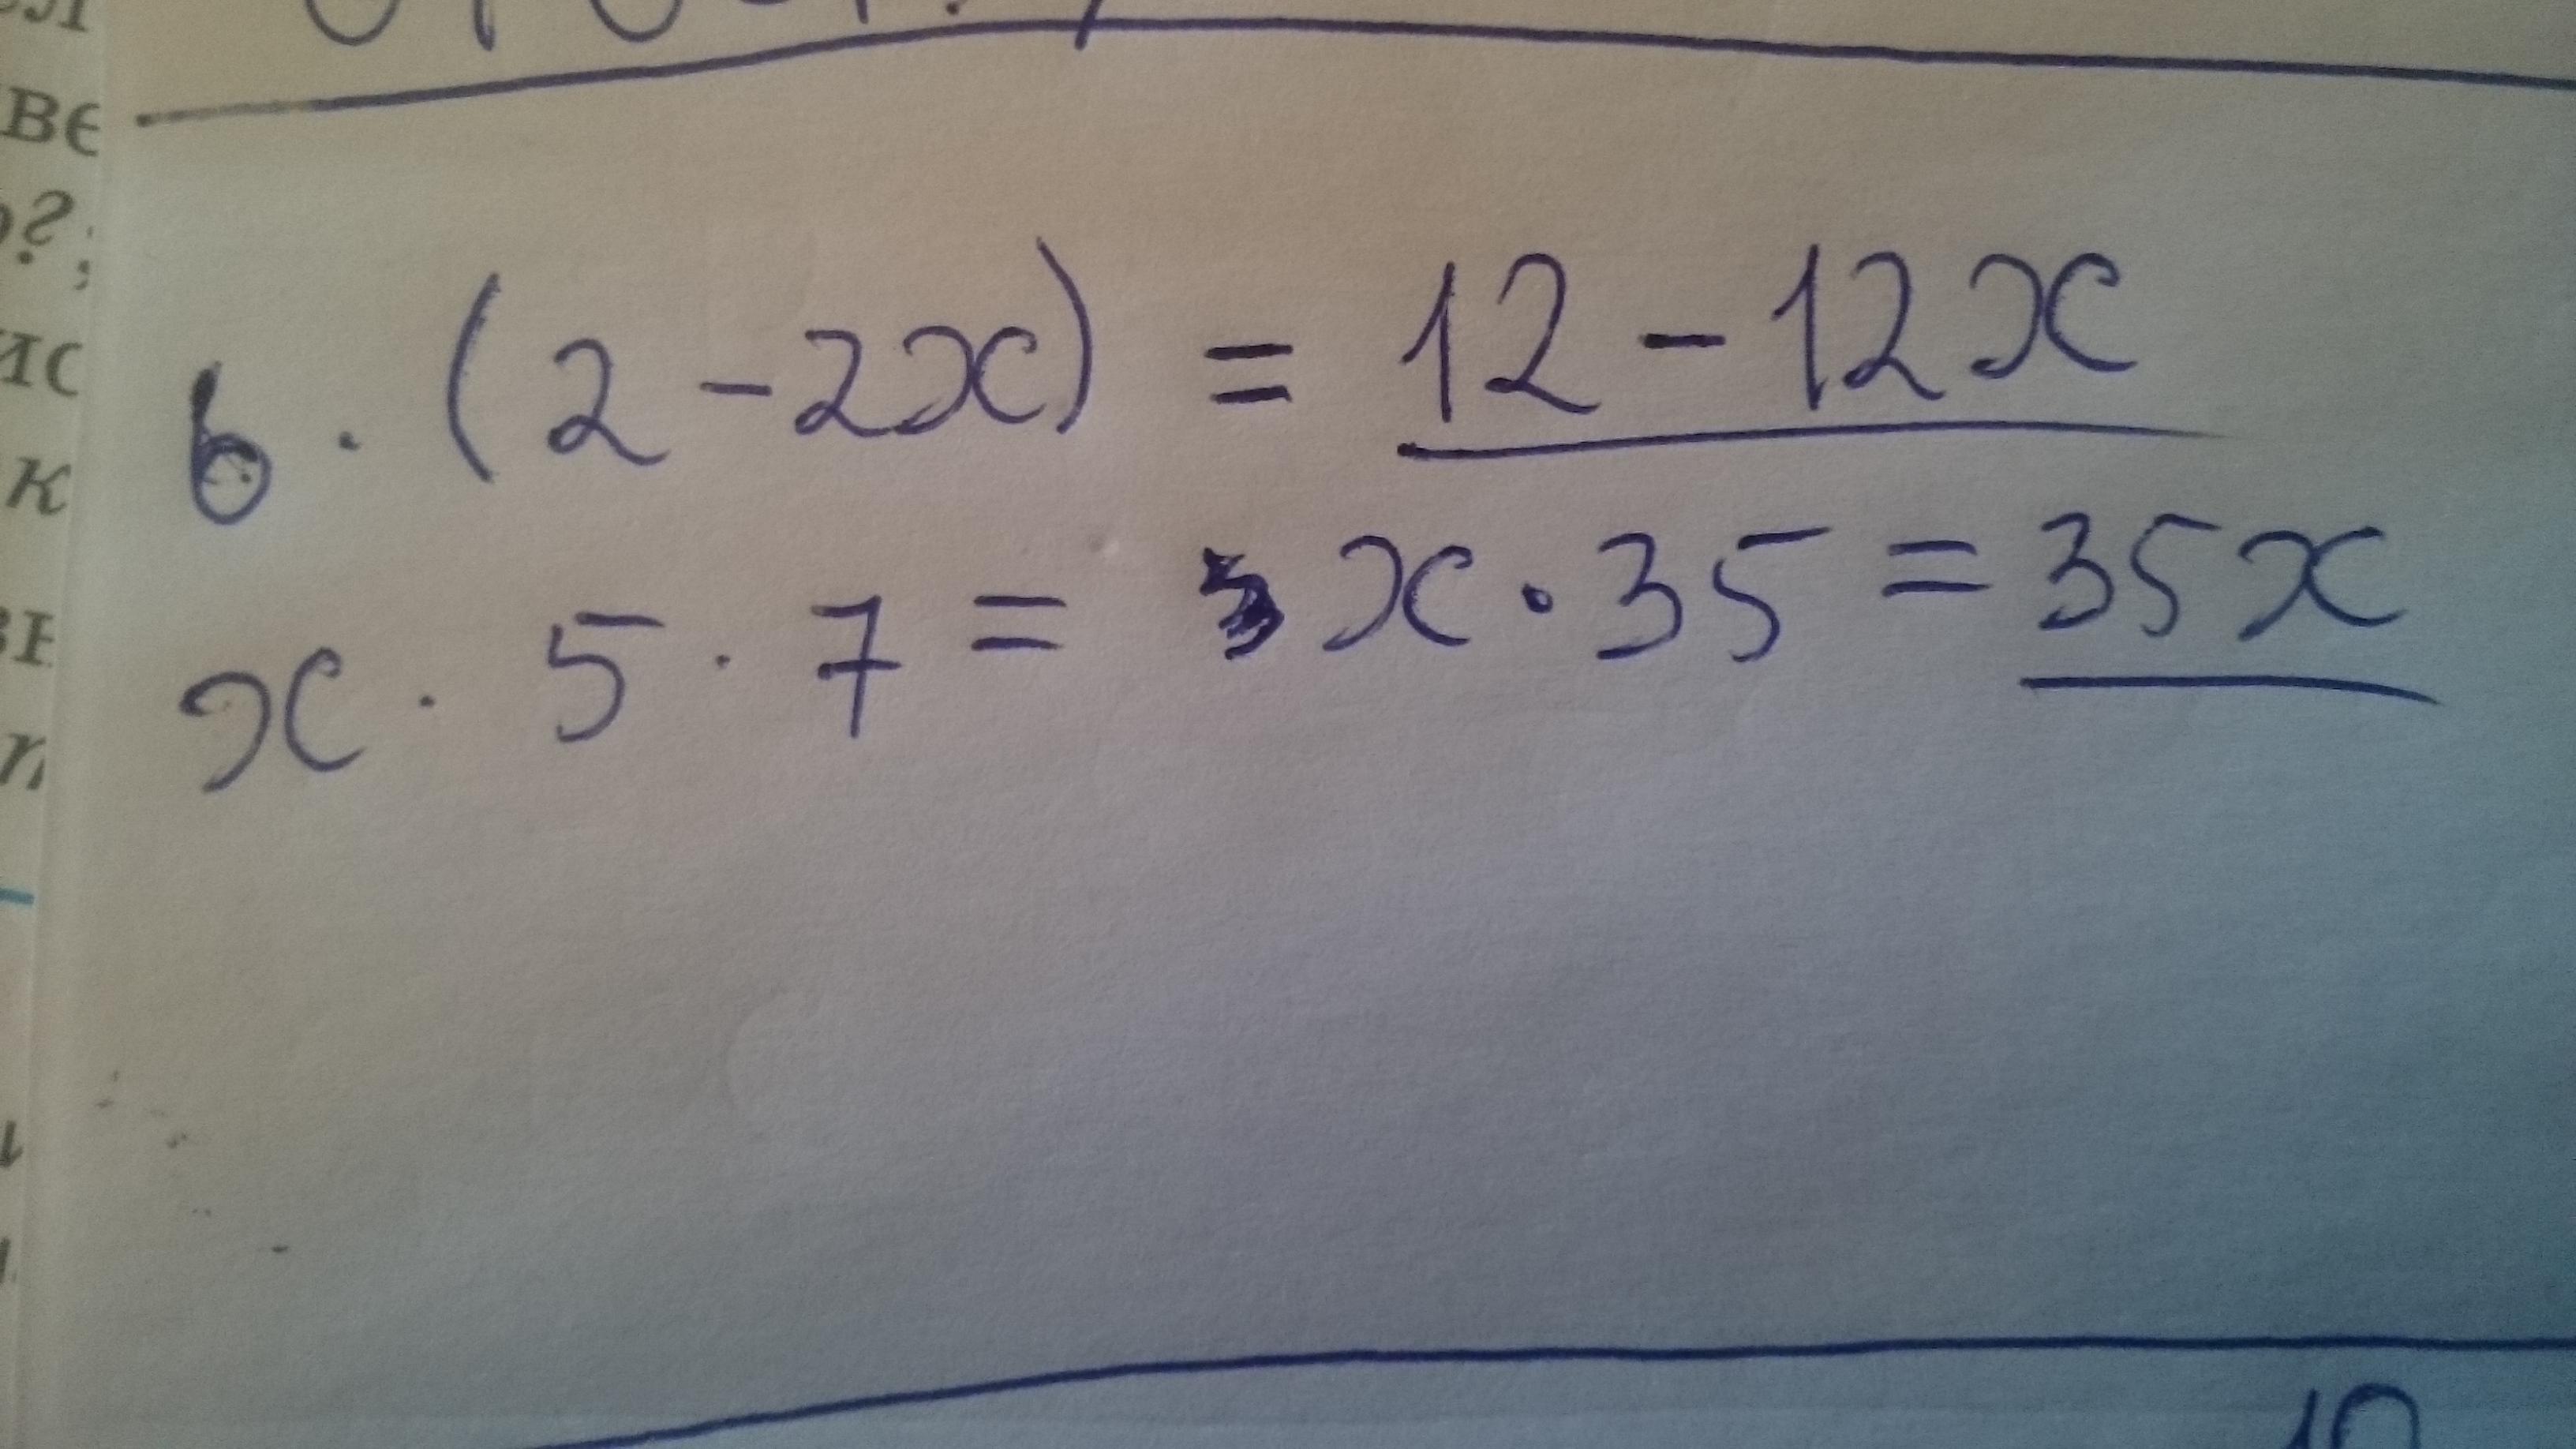 6 · (2 - 2x) = 12 - 12x
x · 5 · 7 = x · 35 = 35x
10